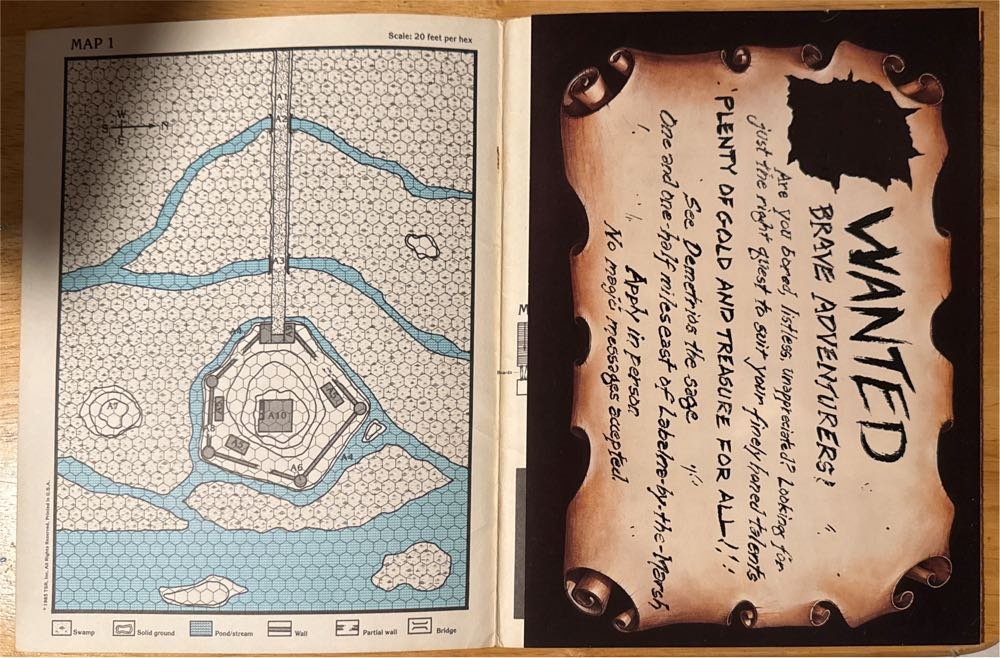 MAP 1
Scale: 20 feet per hex
W
S N
E
A1
A2
A3
A7
A10
A5
A6
A4
© 1985 TSR, Inc. All Rights Reserved. Printed in U.S.A.
Swamp
Solid ground
Pond/stream
Wall
Partial wall
Bridge
M
Boards
WANTED
BRAVE ADVENTURERS!
Are you bored, listless, unappreciated? Looking for
just the right quest to suit your finely honed talents
PLENTY OF GOLD AND TREASURE FOR ALL!!!
See Demetrios the sage
One and one-half miles east of Labelna-by-the-Marsh,
Apply in person.
No magic messages accepted.